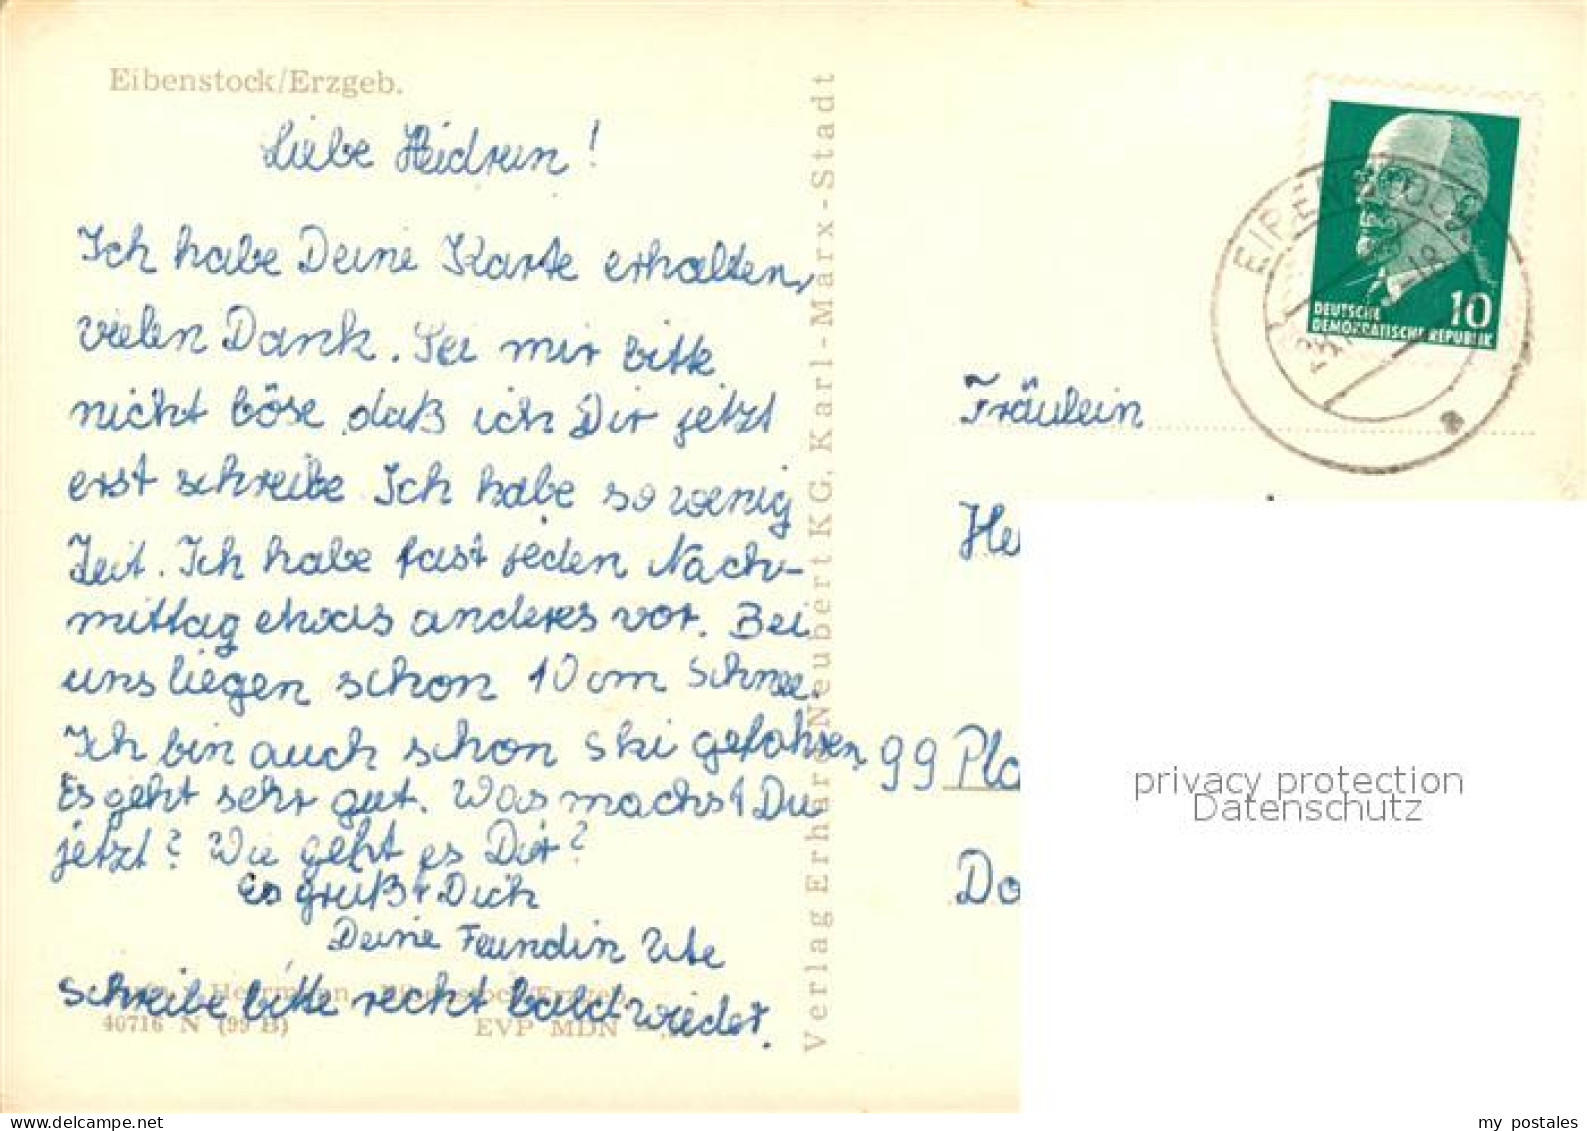 Eibenstock/Erzgeb.
Liebe Heidrun!
Ich habe Deine Karte erhalten,
vielen Dank. Sei mir bitte
nicht böse daß ich Dir jetzt
erst schreibe Ich habe so wenig
Zeit. Ich habe fast jeden Nach-
mittag etwas anderes vor. Bei
uns liegen schon 10 cm Schnee.
Ich bin auch schon Ski gefahren
Es geht sehr gut. Was machst Du
jetzt? Wie geht es Dir?
Es grüßt Dich
Deine Feundin Ute
schreibe bitte recht bald wieder.
40716 N (99 B) EVP MDN
Verlag Erhard Neubert KG, Karl-Marx-Stadt
DEUTSCHE
DEMOKRATISCHE REPUBLIK
10
EIBENSTOCK
a
Fräulein
He
99 Pla
Do
privacy protection
Datenschutz
my postales